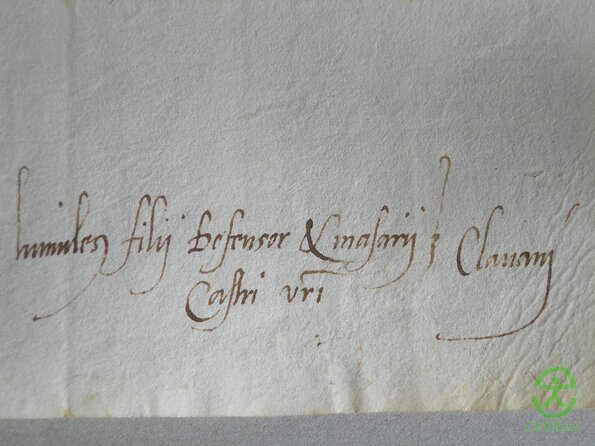 humiles filii Defensor & masarii Clavani
Castri vri